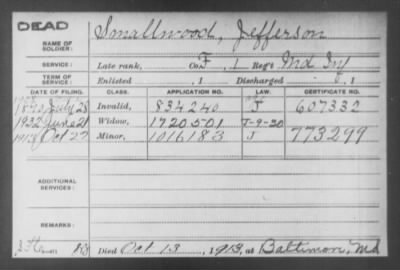 DEAD
Smallwood, Jefferson
NAME OF SOLDIER:
SERVICE: Late rank, Co. F, 1 Reg't Md Inf
TERM OF SERVICE: Enlisted , 1 Discharged , 1
DATE OF FILING. CLASS. APPLICATION NO. LAW. CERTIFICATE NO.
1890 July 28 Invalid, 834240 J 607332
1932 June 21 Widow, 1720501 J-9-20
Oct 27 Minor, 1016183 J 773299
ADDITIONAL SERVICES:
REMARKS:
Died Oct 13, 1913, at Baltimore, Md